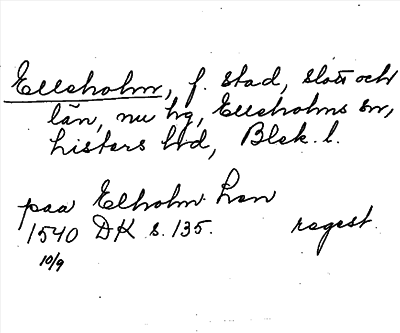 Ellsholm, f. stad, slott och
län, nu hg, Ellsholms sn,
Listers hd, Blek. l.
paa Elholm Len
1540 DK s. 135. regest.
10/9